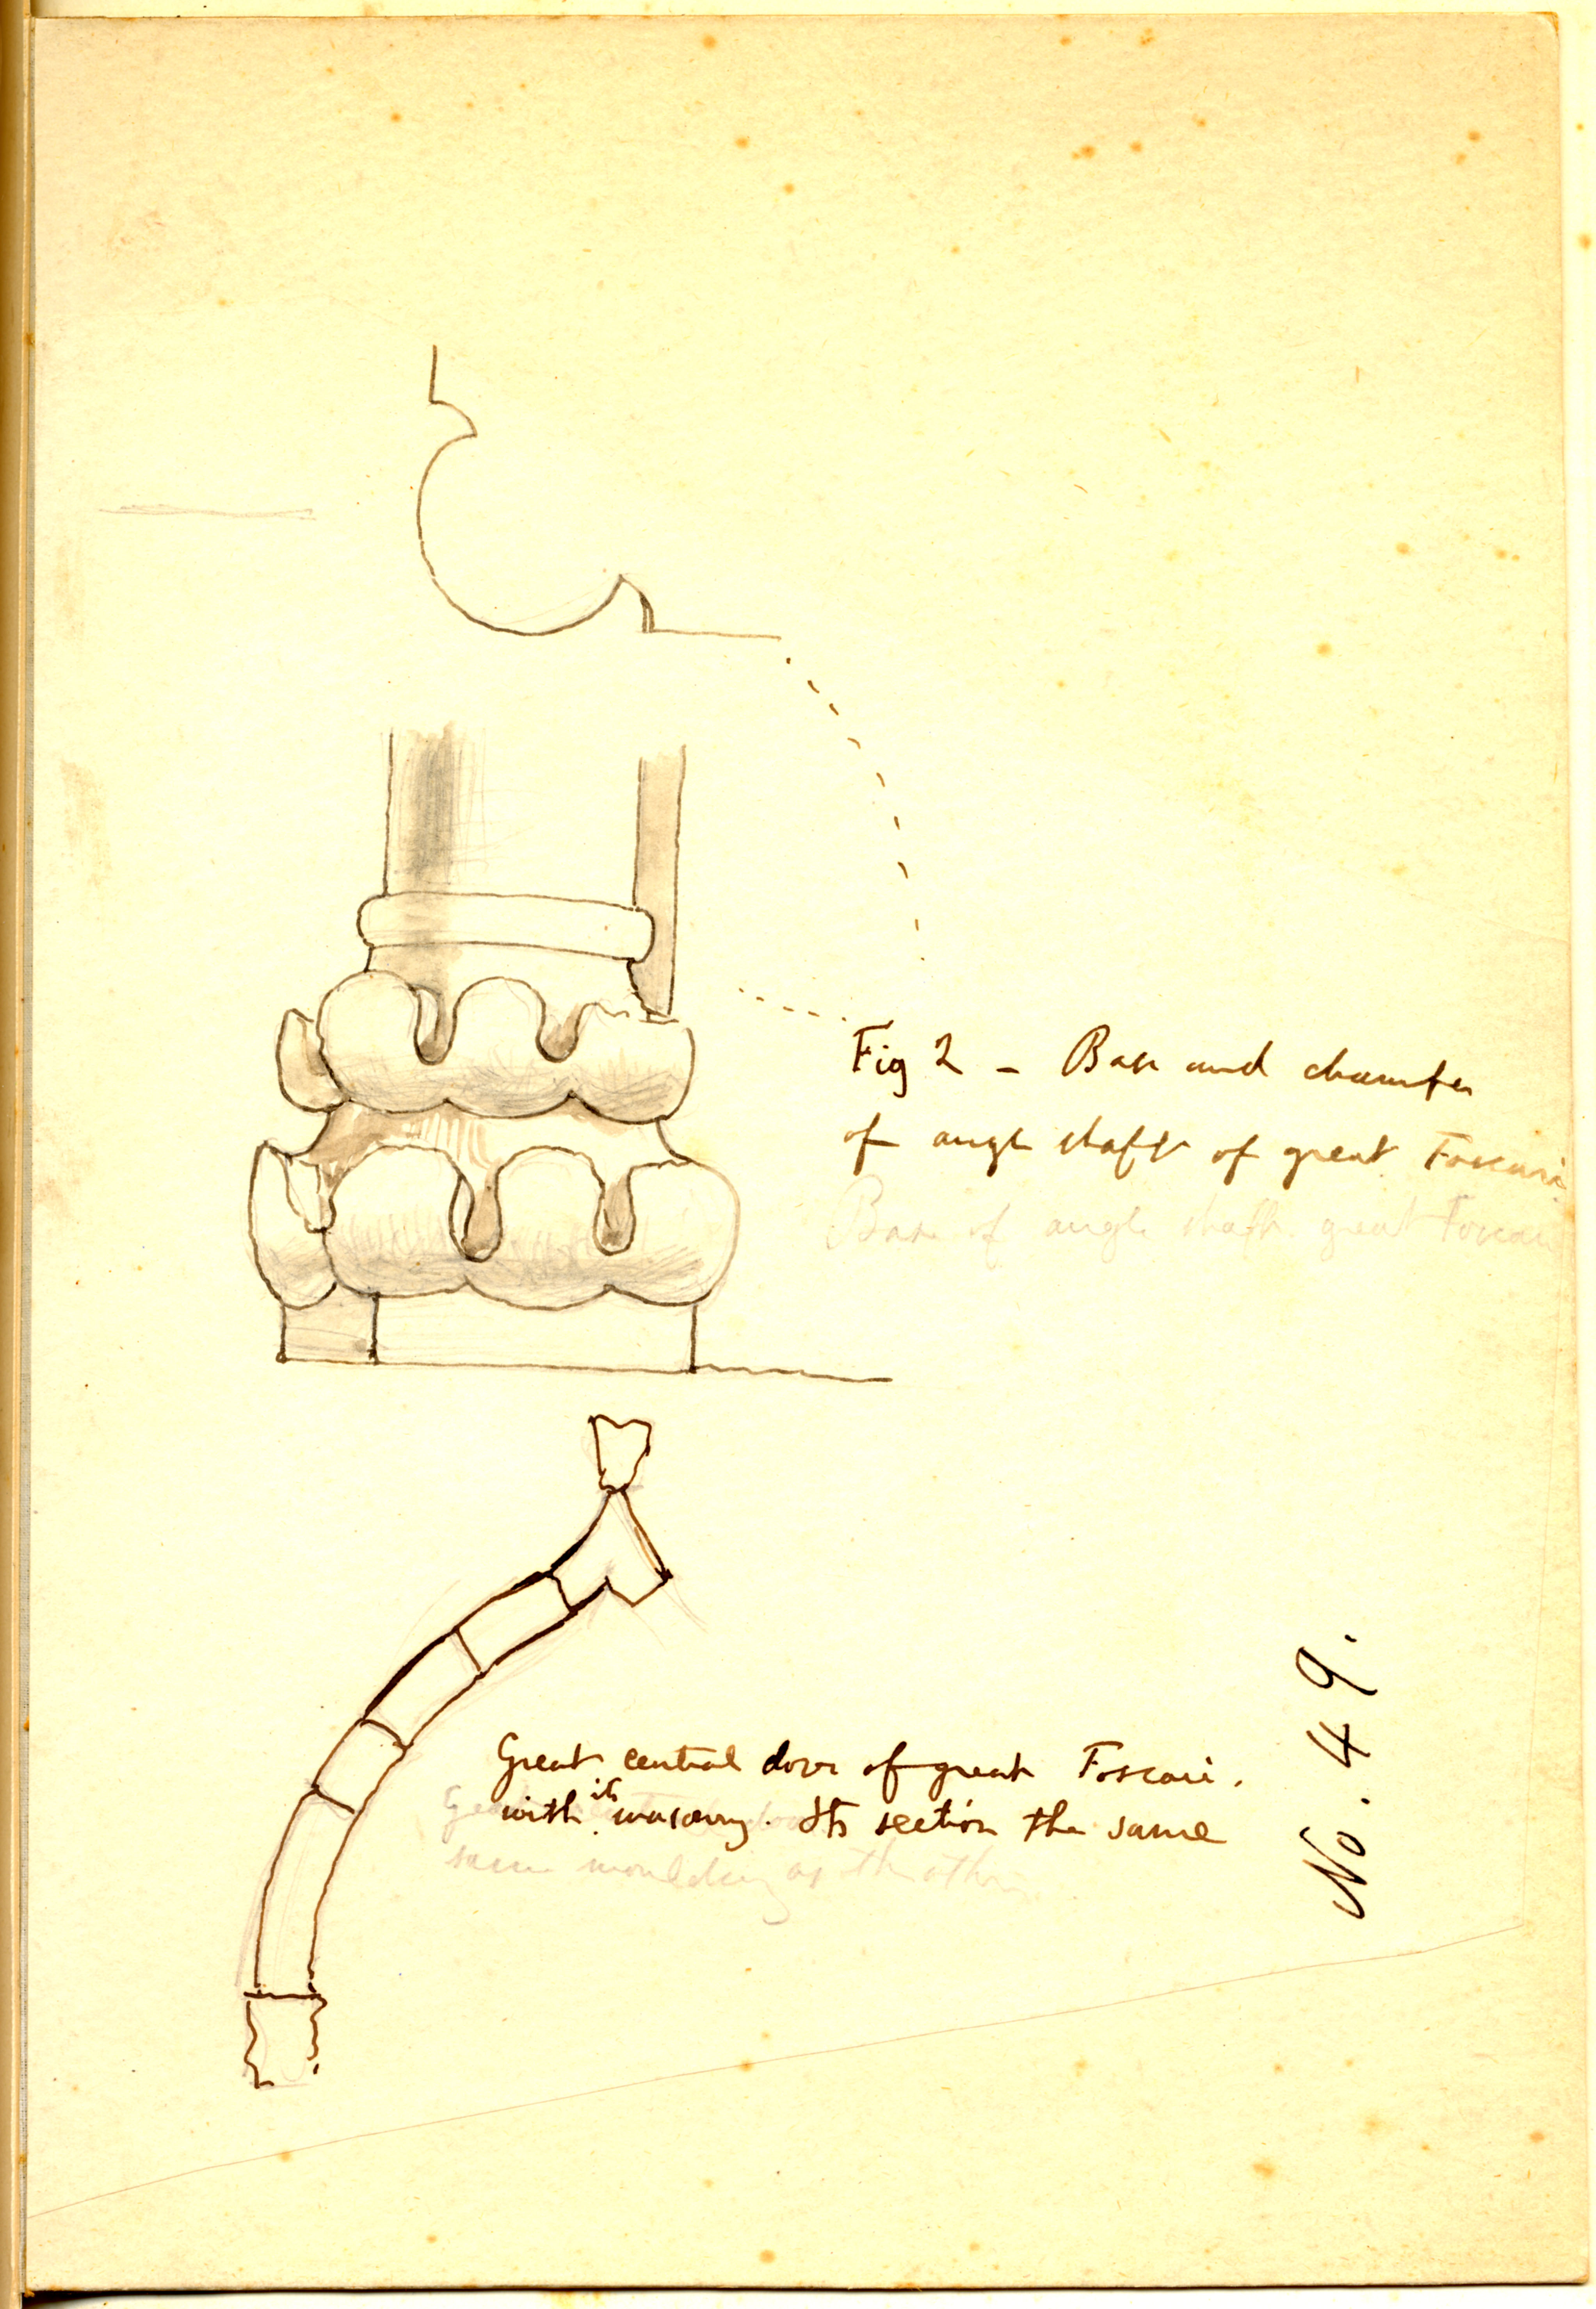 Fig 2 - Base and chamfer
of angle shaft of great Foscari.
Base of angle shaft great Foscari
Great central door of great Foscari.
with its masonry. Its section the same
same moulding as the other
No. 49.